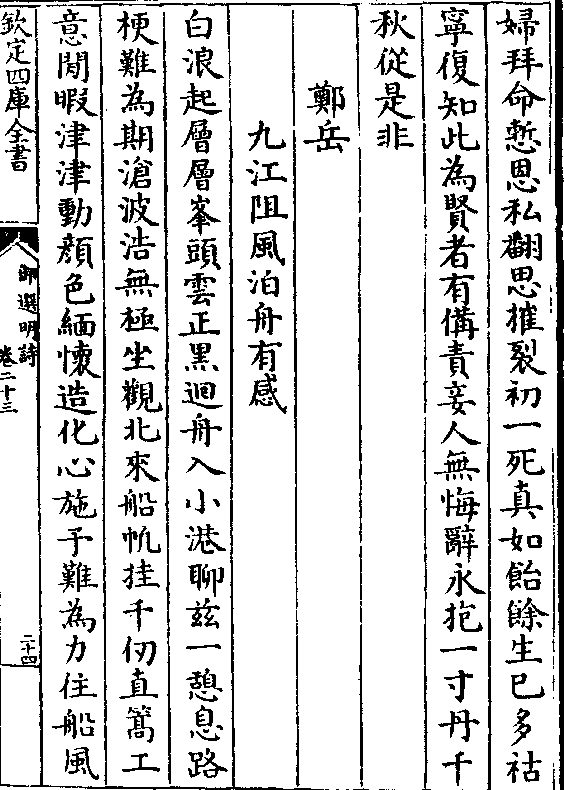 婦拜命慙恩私翻思摧裂初一死真如飴餘生已多祜
寧復知此為賢者有備責妾人無悔辭永抱一寸丹千
秋從是非
鄭岳
九江阻風泊舟有感
白浪起層層峯頭雲正黑迴舟入小港聊兹一憩息路
梗難為期滄波浩無極坐觀北來船帆挂千仞直篙工
意閒暇津津動顔色緬懷造化心施予難為力住船風
欽定四庫全書
御選明詩
卷二十三
二十四